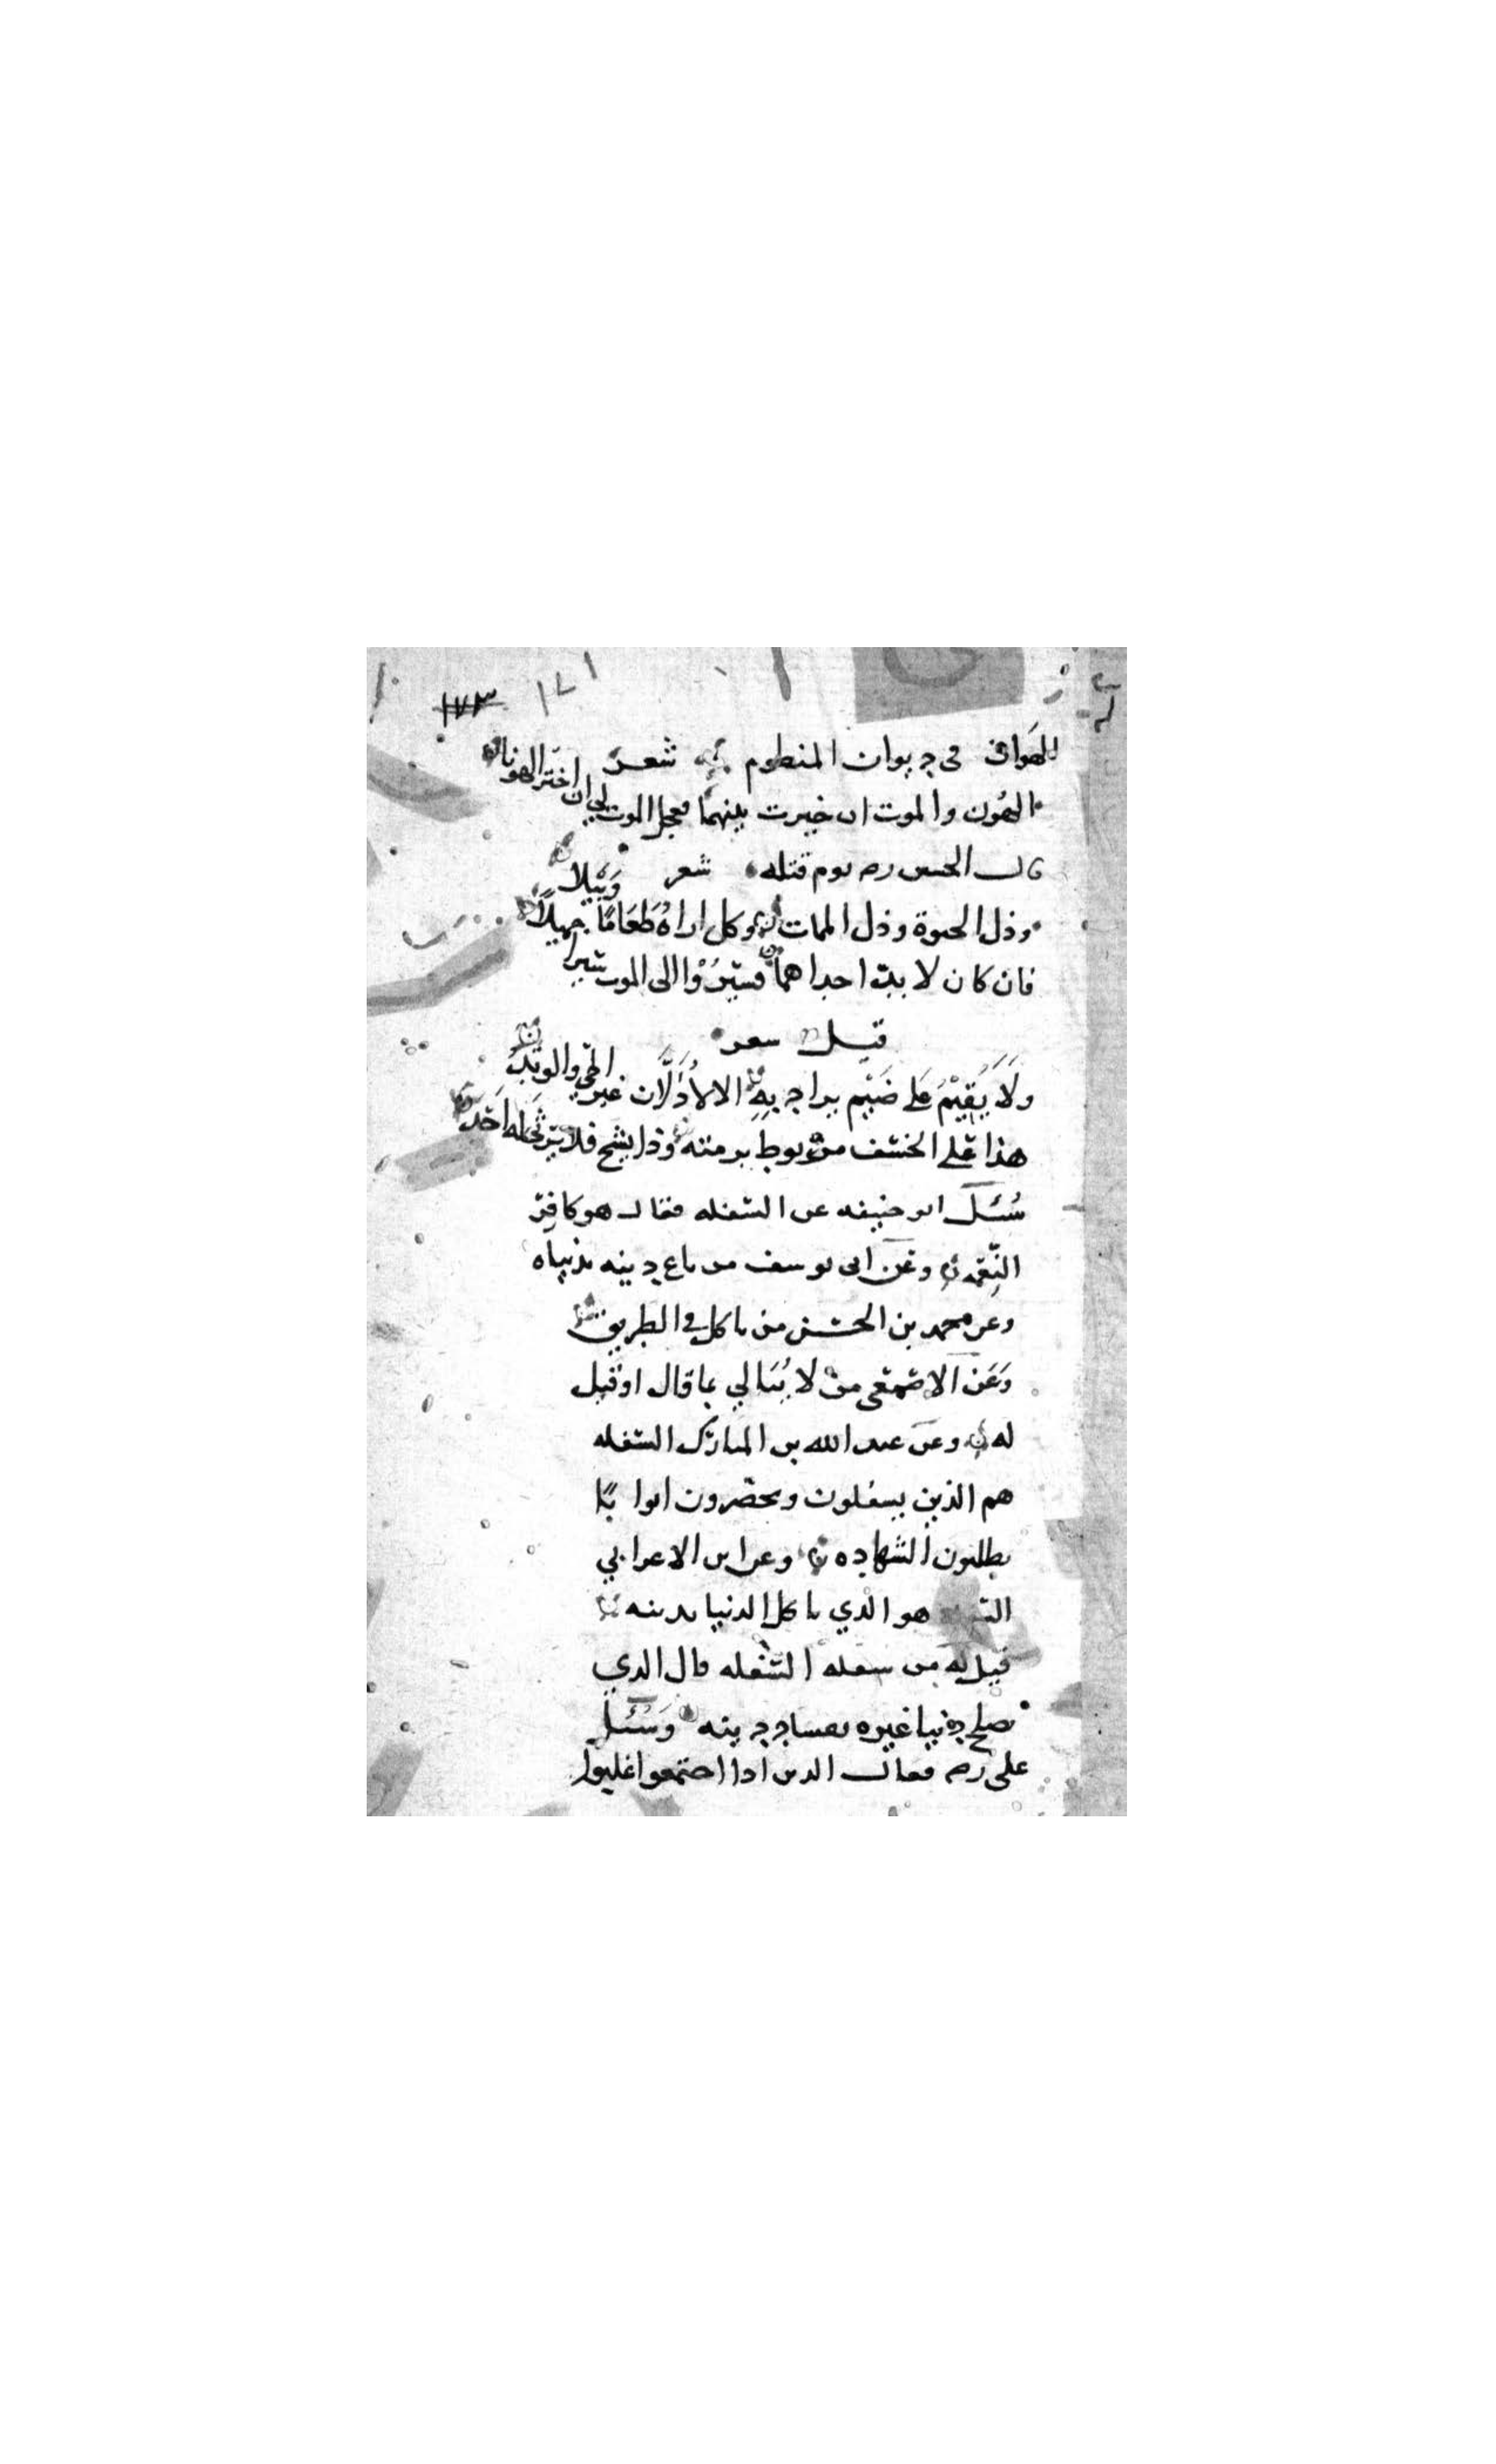 ١٧٣ ١٧١
الهوان في ديوان المنظوم شعر
الهُون والموت ان خيرت بينهما فعجل الموت لي ان اختر الهونا
قال الحسن رمه يوم قتله شعر
وذل الحيوة وذل الممات وكل اراهُ طَعَامًا وَبيلا جميلاً
فان كان لا بد احداهما فسيرُوْا الى الموت سيرا
قيل شعر
ولَا يُقيْمُ عَلى ضَيْم يراد بِهِ الا الأذَلّان عَير الحي والوتد
هذا على الخسف مربوط برمته وذا يشج فلا يرثى له احَد
سُئل ابو حنيفه عن السفله فقال هو كافر
النِّعمه وعَن ابى يوسف من باع دينه بدنياه
وعن محمد بن الحسن من ياكل في الطريق
وَعَن الاصمعى من لا يُبالي بما قال او قيل
له وعن عبد الله بن المبارك السفله
هم الذين يسفلون ويحضرون ابوابا
يطلبون الشهاده وعن ابن الاعرابي
هو الذي ياكل الدنيا بدينه
قيل له من سفله السفله قال الذي
يصلح دنيا غيره بفساد دينه وَسُئل
على رمه فقال الذين اذا اجتمعوا غلبوا